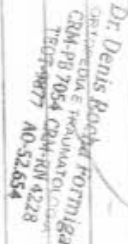 Dr. Denis Rocha Formiga
ORTOPEDIA E TRAUMATOLOGIA
CRM-PB 7054 CRM-RN 4228
TEOT 9877 AO-52.654